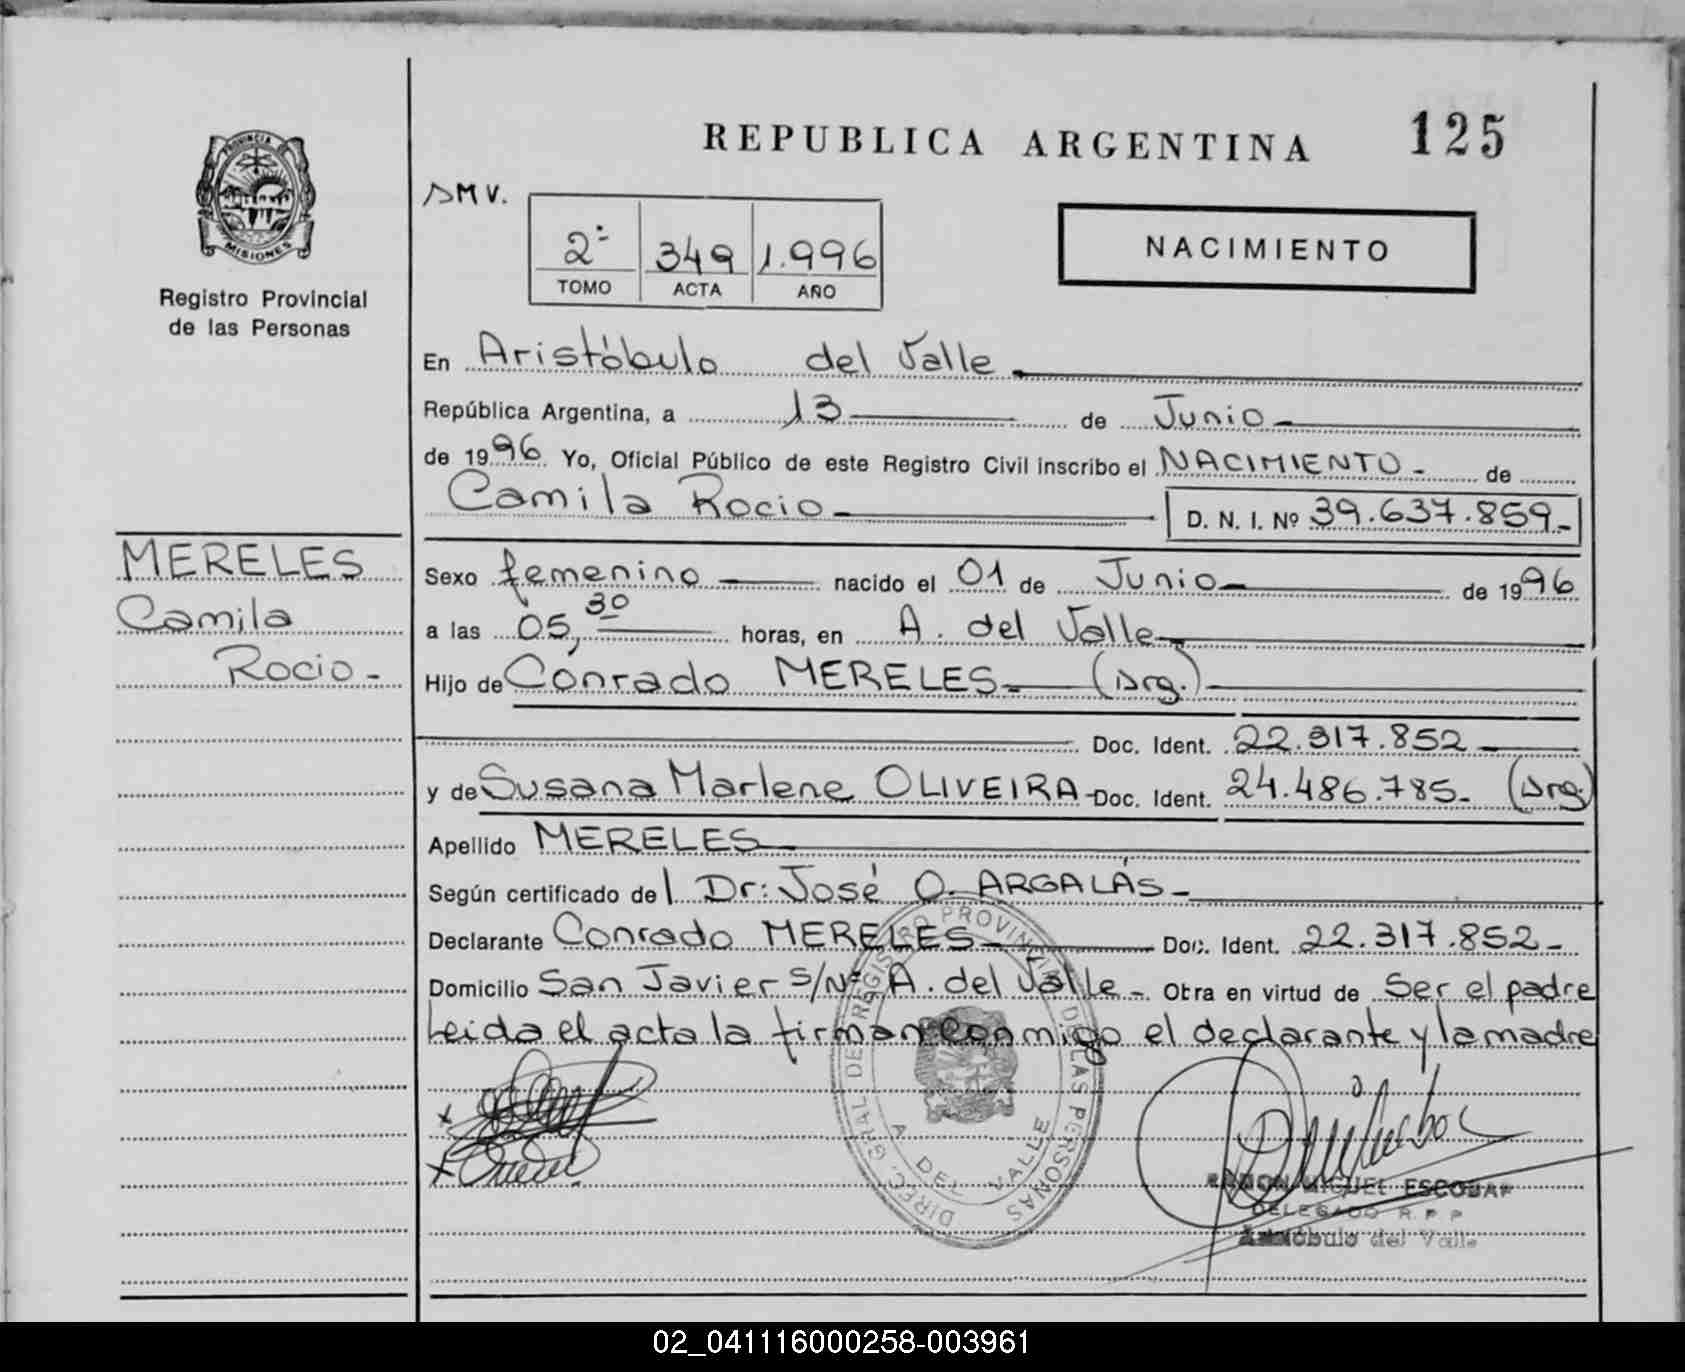 REPUBLICA ARGENTINA 125
PROVINCIA
MISIONES
Registro Provincial
de las Personas
DMV.
2º 349 1.996
TOMO ACTA AÑO
NACIMIENTO
En Aristóbulo del Valle
República Argentina, a 13 de Junio
de 1996 Yo, Oficial Público de este Registro Civil inscribo el NACIMIENTO de
Camila Rocio D. N. I. Nº 39.637.859
MERELES
Camila
Rocio
Sexo femenino nacido el 01 de Junio de 1996
a las 05,30 horas, en A. del Valle
Hijo de Conrado MERELES (Arg.)
Doc. Ident. 22.317.852
y de Susana Marlene OLIVEIRA Doc. Ident. 24.486.785 (Arg.)
Apellido MERELES
Según certificado del Dr: José O. ARGALÁS
Declarante Conrado MERELES Doc. Ident. 22.317.852
Domicilio San Javier S/Nº A. del Valle Obra en virtud de Ser el padre
Leida el acta la firman conmigo el declarante y la madre
DIREC. GRAL DE REGISTRO PROVINCIAL DE LAS PERSONAS
A DEL VALLE
RAMON MIGUEL ESCOBAR
DELEGADO R. P. P
Aristóbulo del Valle
02_041116000258-003961